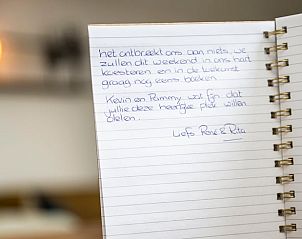 het ontbreekt ons aan niets, we
zullen dit weekend in ons hart
koesteren en in de toekomst
graag nog eens boeken.
Kevin en Pammy wat fijn dat
jullie deze heerlijke plek willen
delen.
Liefs René & Rita